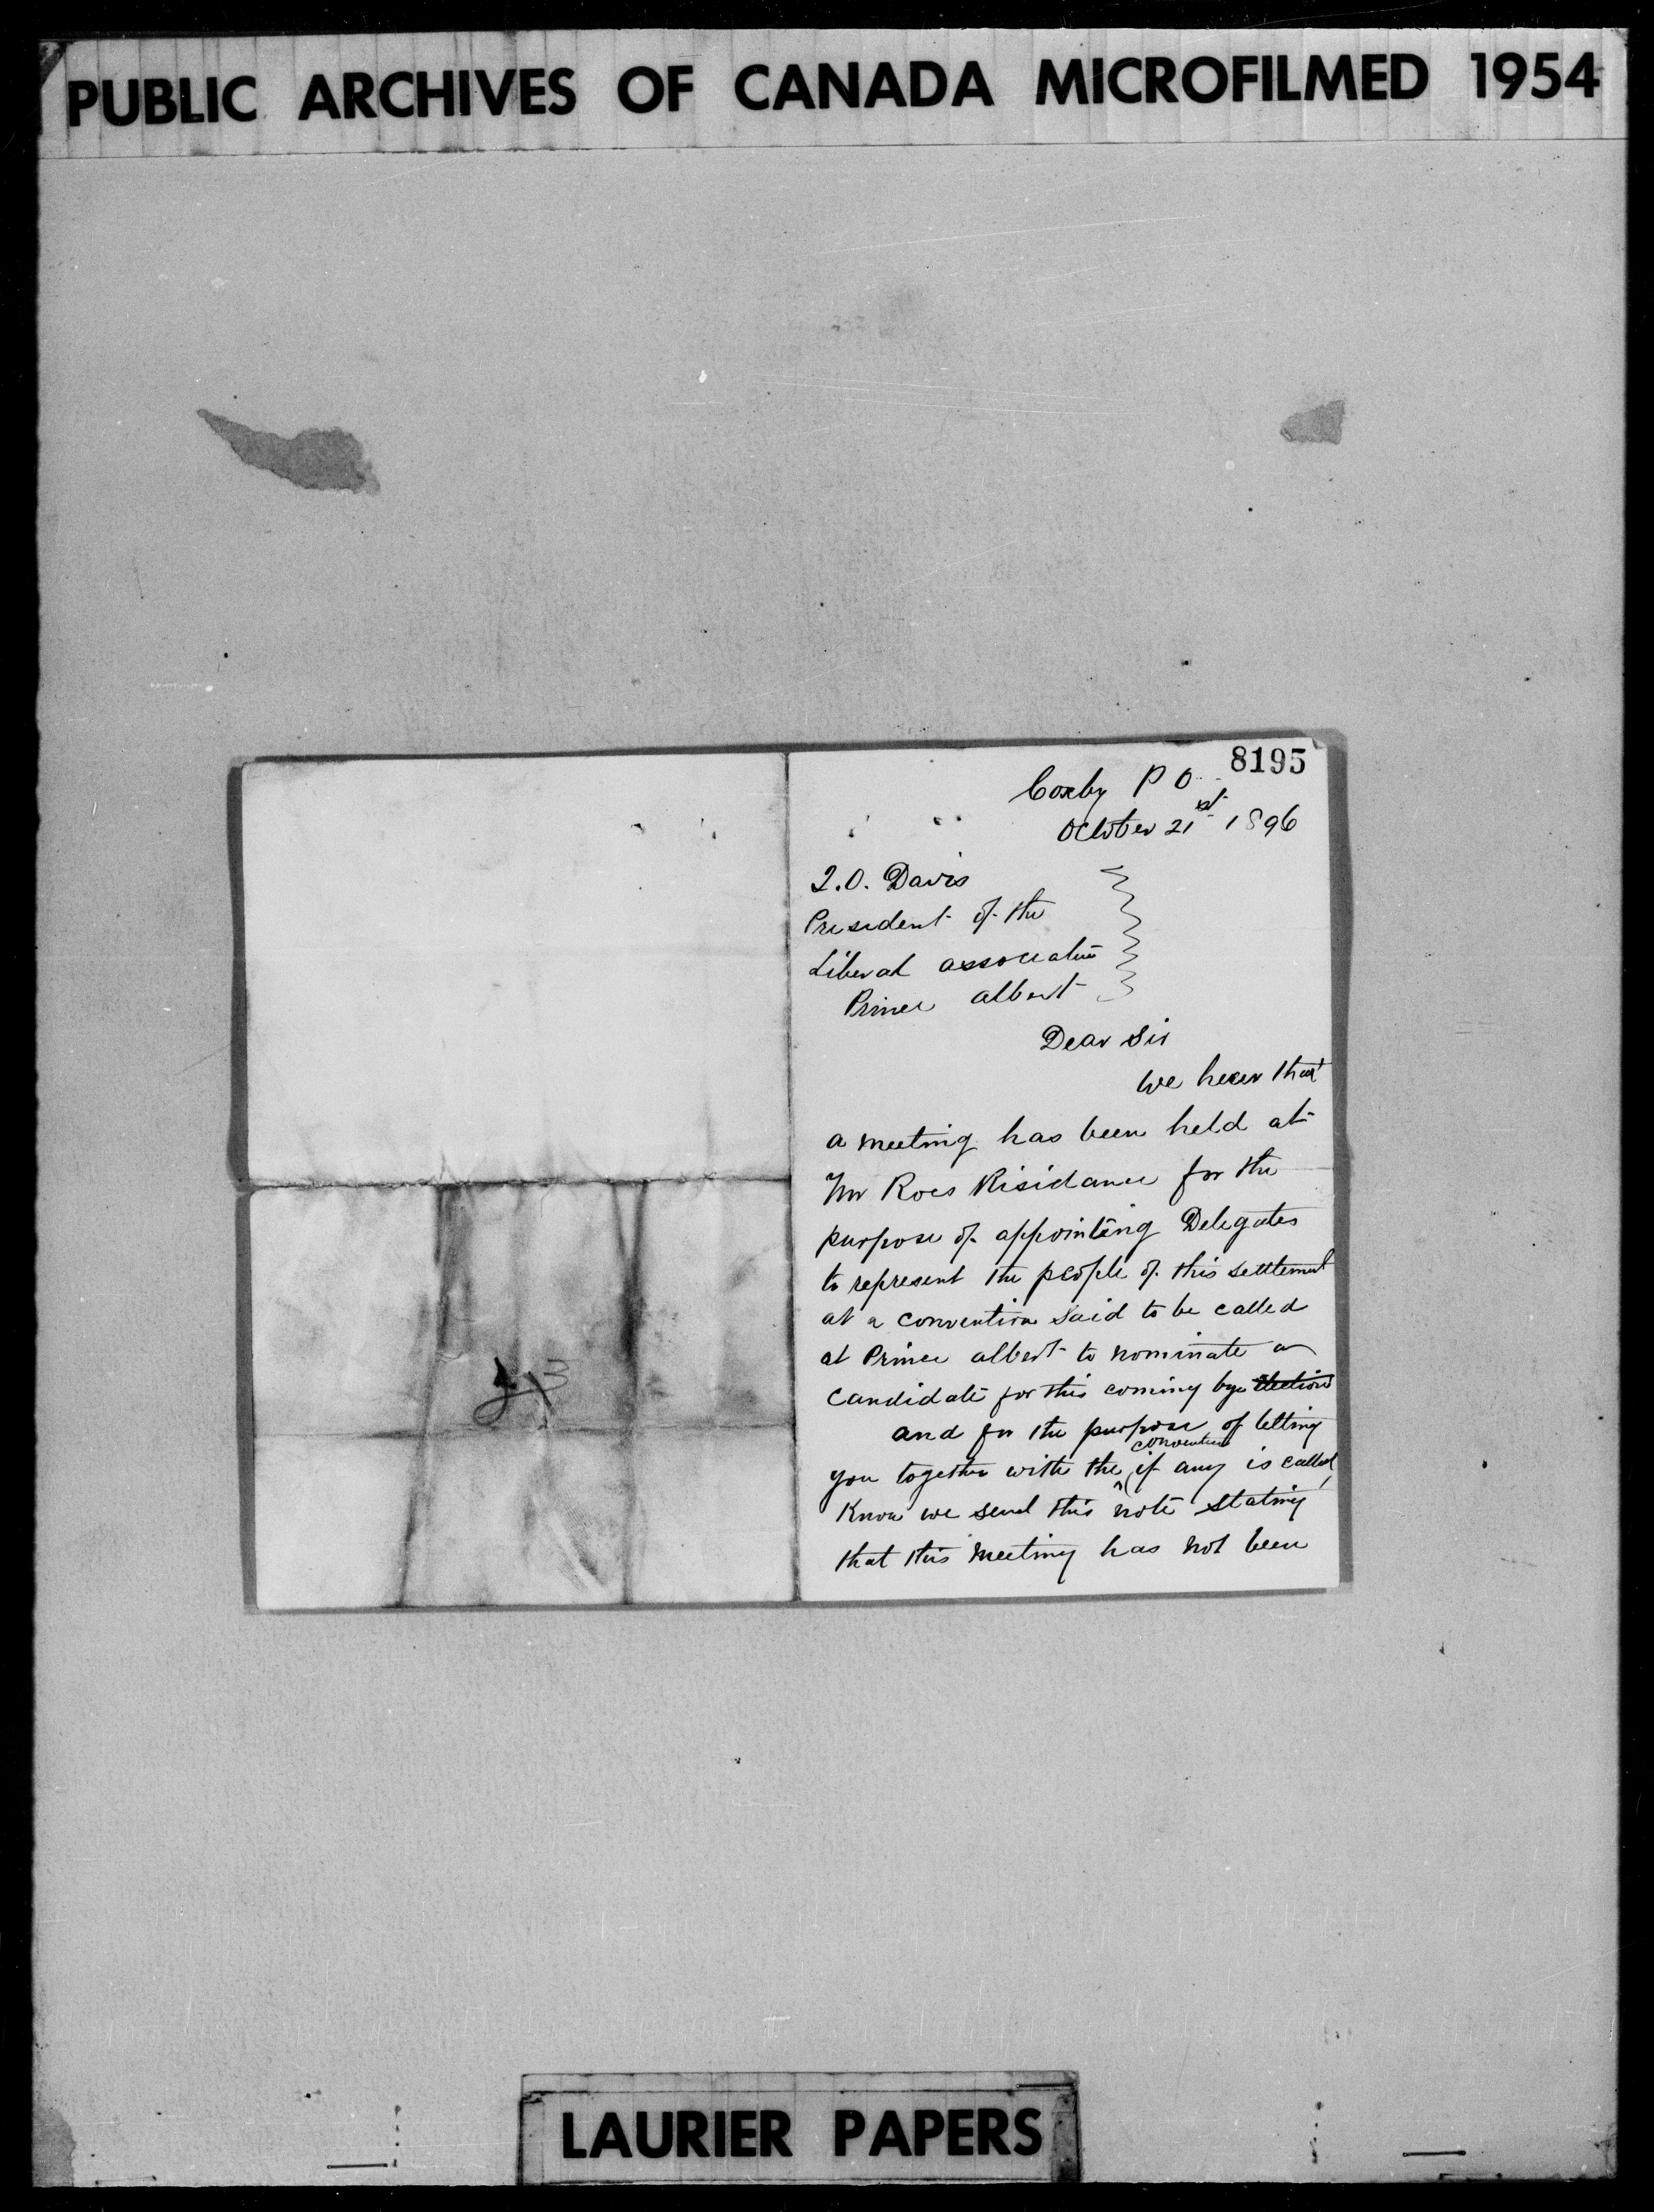 PUBLIC ARCHIVES OF CANADA MICROFILMED 1954
8195
Coxby P O
October 21st 1896
T.O. Davis
President of the
Liberal association
Prince albert
Dear Sir
We hear that
a meeting has been held at
Mr Roes Risidance for the
purpose of appointing Delegates
to represent the people of this settlement
at a convention said to be called
at Prince albert to nominate a
candidate for this coming bye election
and for the purpose of letting
you together with the convention if any is called,
Know we send this note stating
that this meeting has not been
LAURIER PAPERS